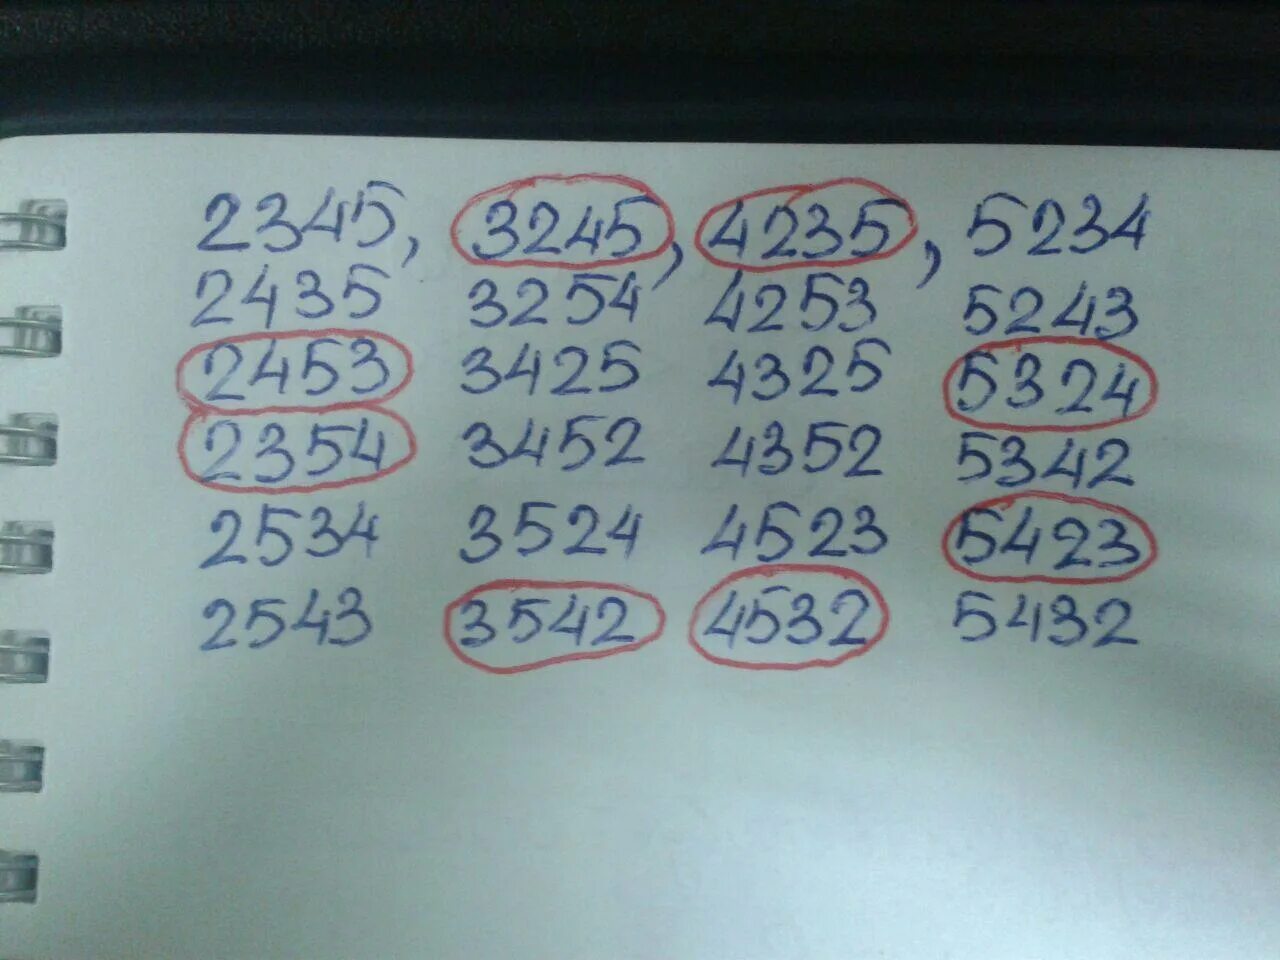 2345, 3245, 4235, 5234
2435 3254 4253 5243
2453 3425 4325 5324
2354 3452 4352 5342
2534 3524 4523 5423
2543 3542 4532 5432